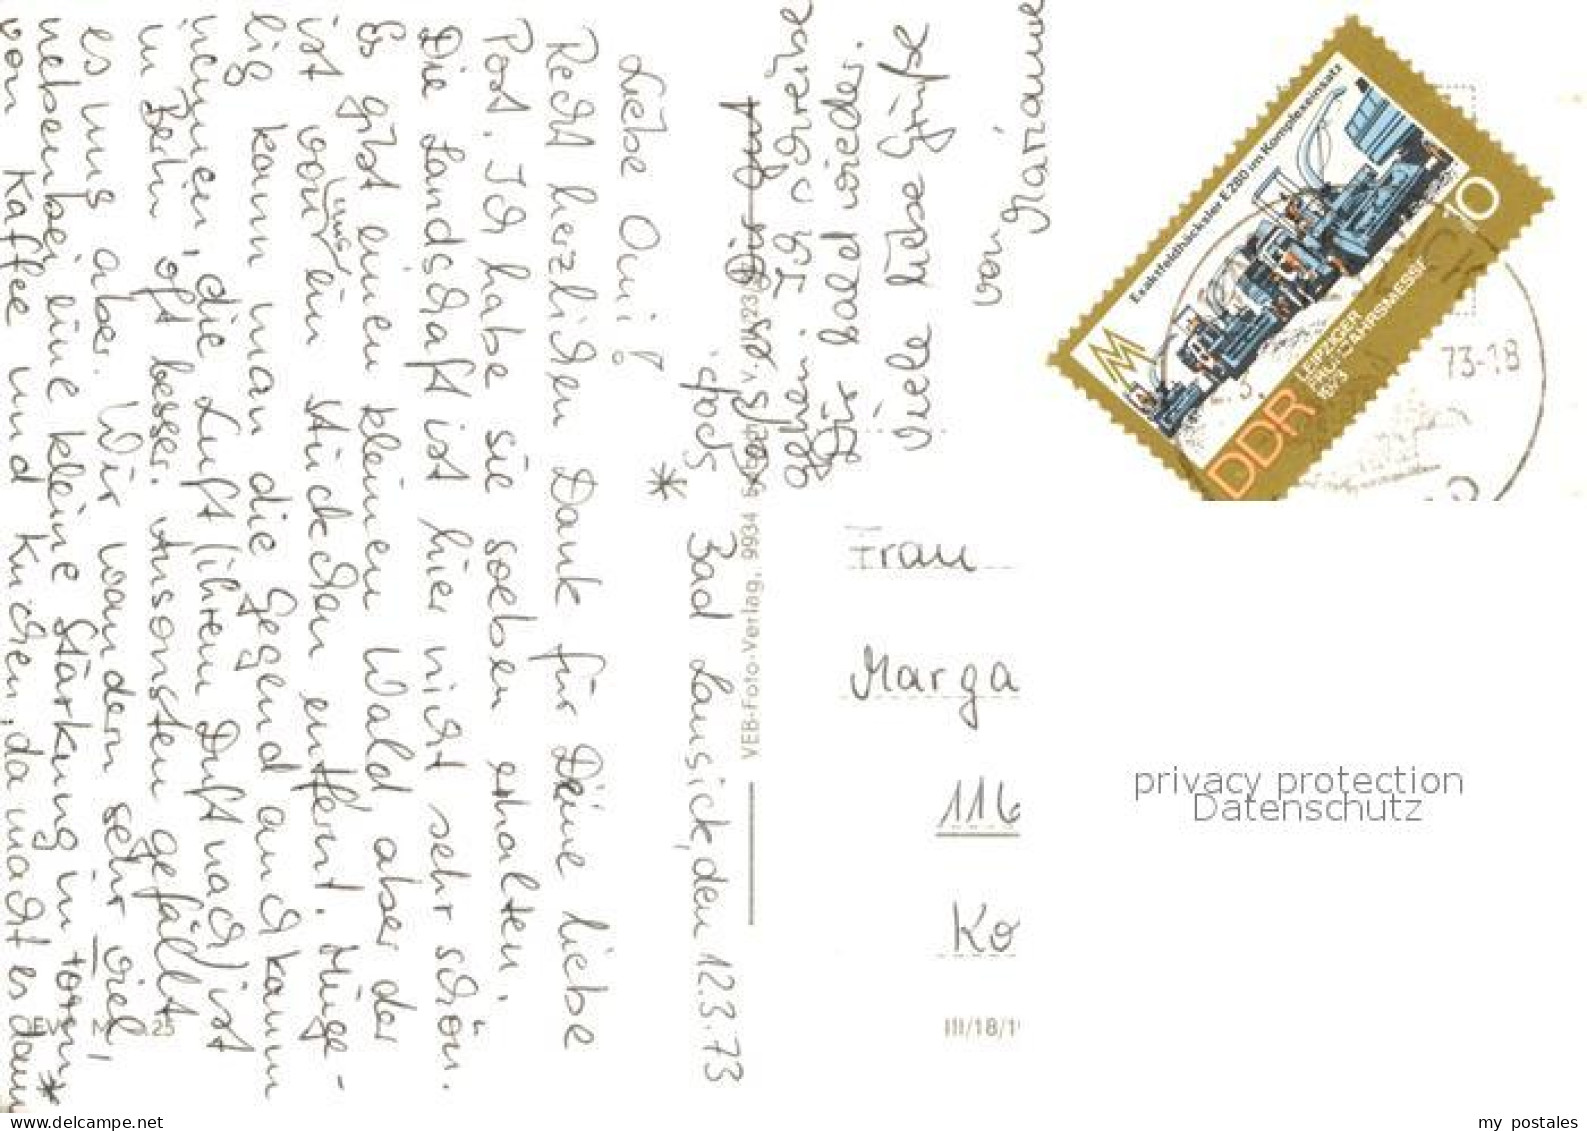 Bad Lausick, den 12.3.73
Liebe Omi!
Recht herzlichen Dank für Deine liebe
Post. Ich habe sie soeben erhalten.
Die Landschaft ist hier nicht sehr schön.
Es gibt einen kleinen Wald, aber der
ist von uns ein Stückchen entfernt. Hüge-
lig kann man die Gegend auch kaum
nennen, die Luft (ihrem Duft nach) ist
in Berlin oft besser. Ansonsten gefällt
es uns aber. Wir wandern sehr viel,
nebenbei eine kleine Stärkung in Form *
von Kaffee und Kuchen, da macht es dann
*
doch
gehen. Ich schreibe
Dir bald wieder.
Viele liebe Grüße
von Marianne
VEB-Foto-Verlag, 9934
Exaktfeldhäcksler E 280 im Komplexeinsatz
10
LEIPZIGER
FRÜHJAHRSMESSE
1973
DDR
73-18
Frau
Marga
116
Kö
III/18/1
privacy protection
Datenschutz
www.delcampe.net
my_postales